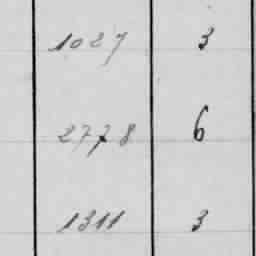 1027 3
2778 6
1311 3